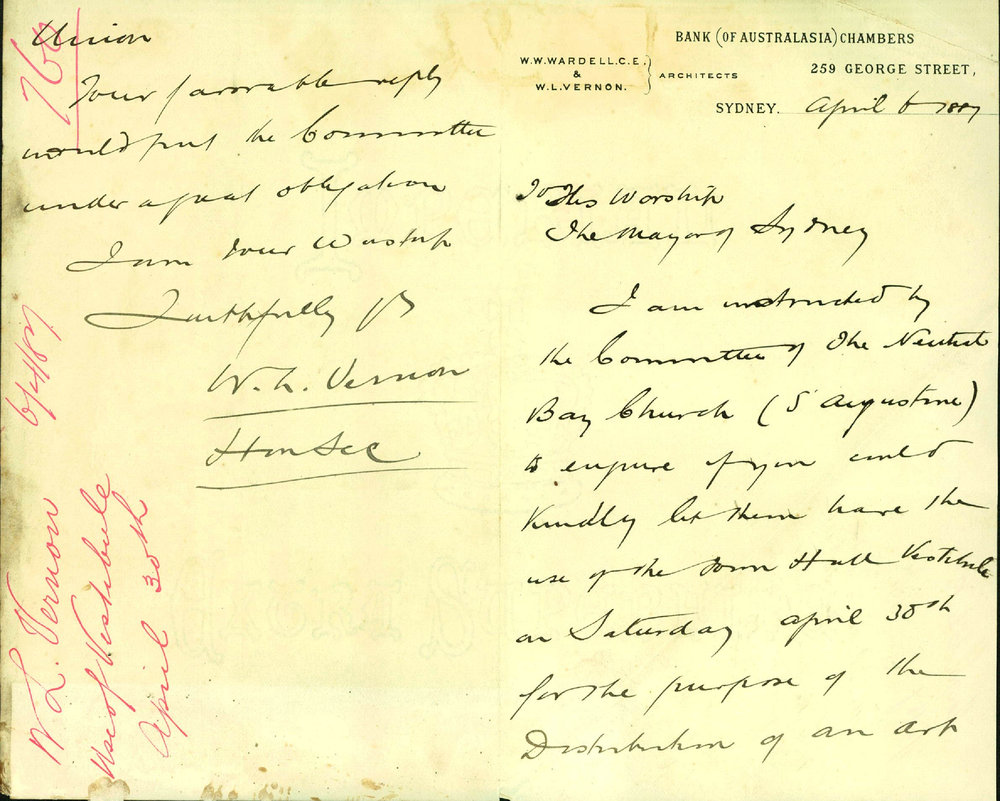 BANK (OF AUSTRALASIA) CHAMBERS
W.W.WARDELL.C.E.
&
W.L.VERNON.
ARCHITECTS
259 GEORGE STREET,
SYDNEY. April 6 1887
To His Worship
The Mayor of Sydney
I am instructed by
the Committee of The Neutral
Bay Church (S Augustine)
to enquire if you could
Kindly let them have the
use of the Town Hall Vestibule
on Saturday april 30th
for the purpose of the
Distribution of an Art
Union
Your favorable reply
would put the Committee
under a great obligation
I am Your Worship
Faithfully yrs
W. L. Vernon
Hon Sec
760
6/4/87
W L. Vernon
Use of Vestibule
April 30th